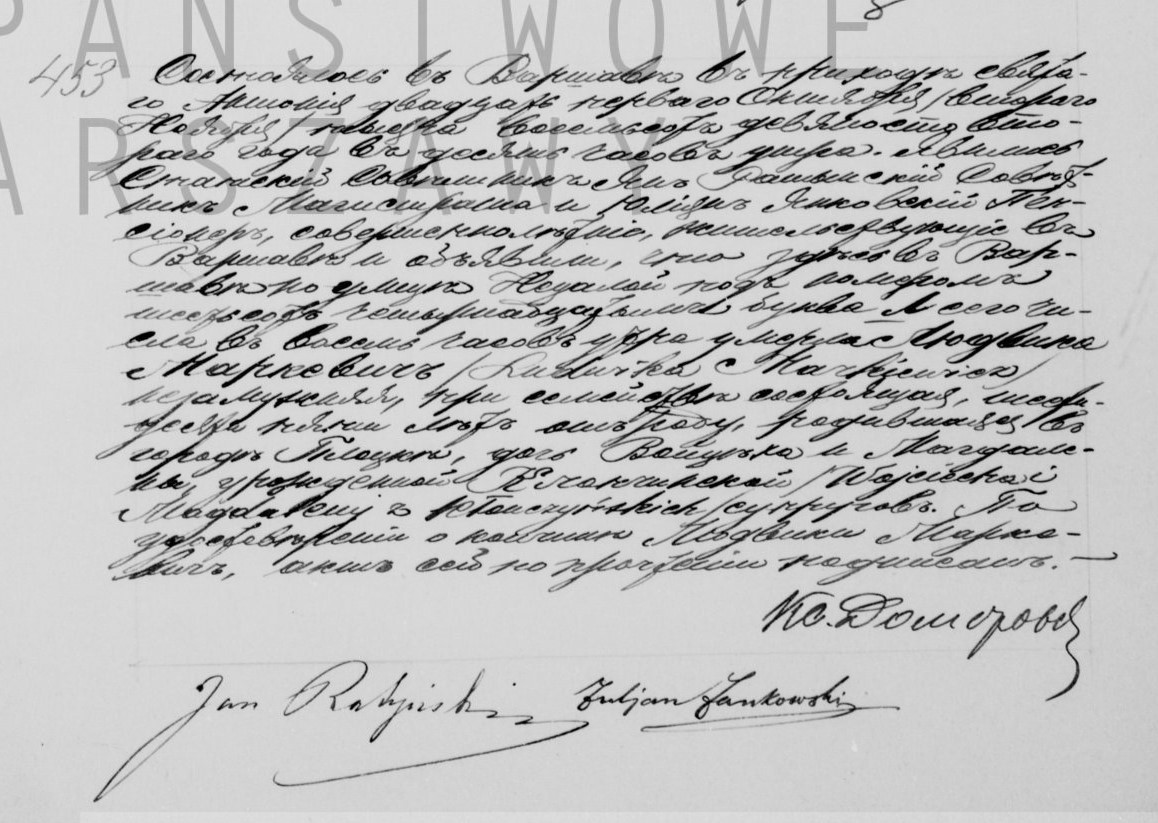 PAŃSTWOWE
WARSZAWY
453
Состоялось въ Варшавѣ въ приходѣ свята-
го Антонія двадцать перваго Октября /второго
Ноября/ тысяча восемьсотъ девяносто вто-
раго года въ десять часовъ утра. Явились
Статскій Совѣтникъ Янъ Совѣт-
никъ Магистрата и Юліянъ Янковскій Пен-
сіонеръ, совершеннолѣтніе, жительствующіе въ
Варшавѣ и объявили, что здѣсь въ Вар-
шавѣ по улицѣ Нецалой подъ номеромъ
шестьсотъ четырнадцатымъ буква сего чи-
сла въ восемь часовъ утра умерла Людвика
Маркевичъ /Ludwika Markiewicz/
незамужняя, при семействѣ состоящая, шесть-
десяти пяти лѣтъ отъ роду, родившаяся въ
городѣ Плоцкѣ, дочь Войцѣха и Магдале-
ны урожденной Клончинской /Wojciecha i
Magdaleny z Kłonczyńskich/ супруговъ. По
удостовѣреніи о кончинѣ Людвики Марке-
вичъ, актъ сей по прочтеніи подписанъ.
Кс.
Jan
Juljan Jankowski